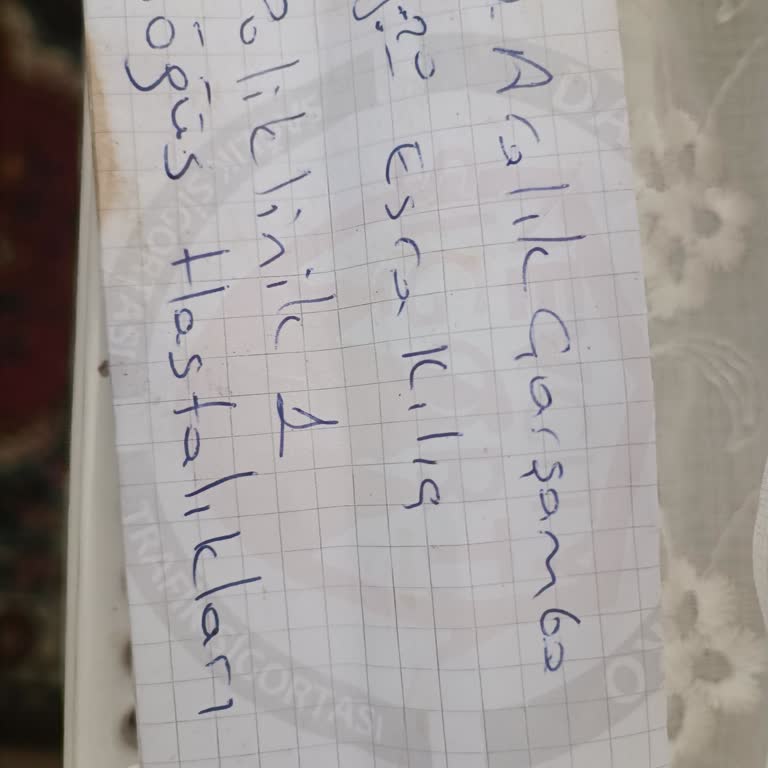 Aralık Çarşamba
Esra Kılıç
Poliklinik 1
Göğüs Hastalıkları
TRAFİK SİGORTASI